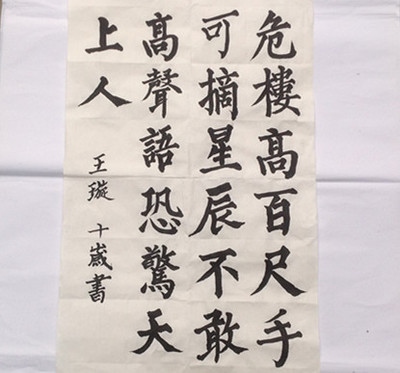 危樓高百尺手
可摘星辰不敢
高聲語恐驚天
上人
王璇 十歲書